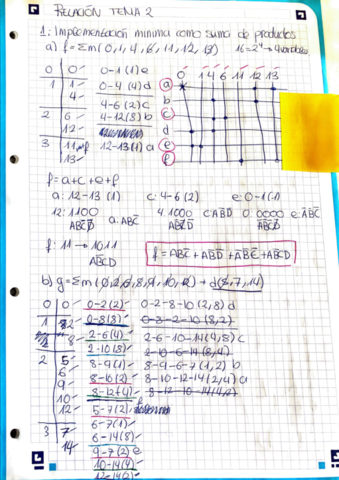 RELACIÓN TEMA 2
1: Implementación mínima como suma de productos
a) f = Σm(0,1,4,6,11,12,13) 16=2⁴→4 variables
0 0 0-1(1)e 0 1 4 6 11 12 13
1 1 0-4(4)d a
4 4-6(2)c b
2 6 4-12(8)b c
12 d
3 11 f 12-13(1)a e
13 f
f = a+c+e+f
a: 12-13(1) c: 4-6(2) e: 0-1(1)
12: 1100 a: ABC̄ 4: 0: 0000 e: ĀB̄C̄
f: 11 → 1011
AB̄CD
b) g = Σm( 10, 12) + d(5,7,14)
0 0 0-2(2) 0-2-8-10(2,8)d
1 2 0-8(8) 0-8-2-10(8,2)
8 2-6(4) 2-6-10-14(8,4)c
2-10(8) 2-10-6-14(8,4)
2 5 8-9(1) 8-9-6-7(1,2)b
6 8-10(2) 8-10-12-14(2,4)a
9 8-12(4) 8-12-10-14(4,2)
10 5-7(2)
12 6-7(1)
3 7 6-14(8)
14 9-7(2)e
10-14(4)
12-14(2)